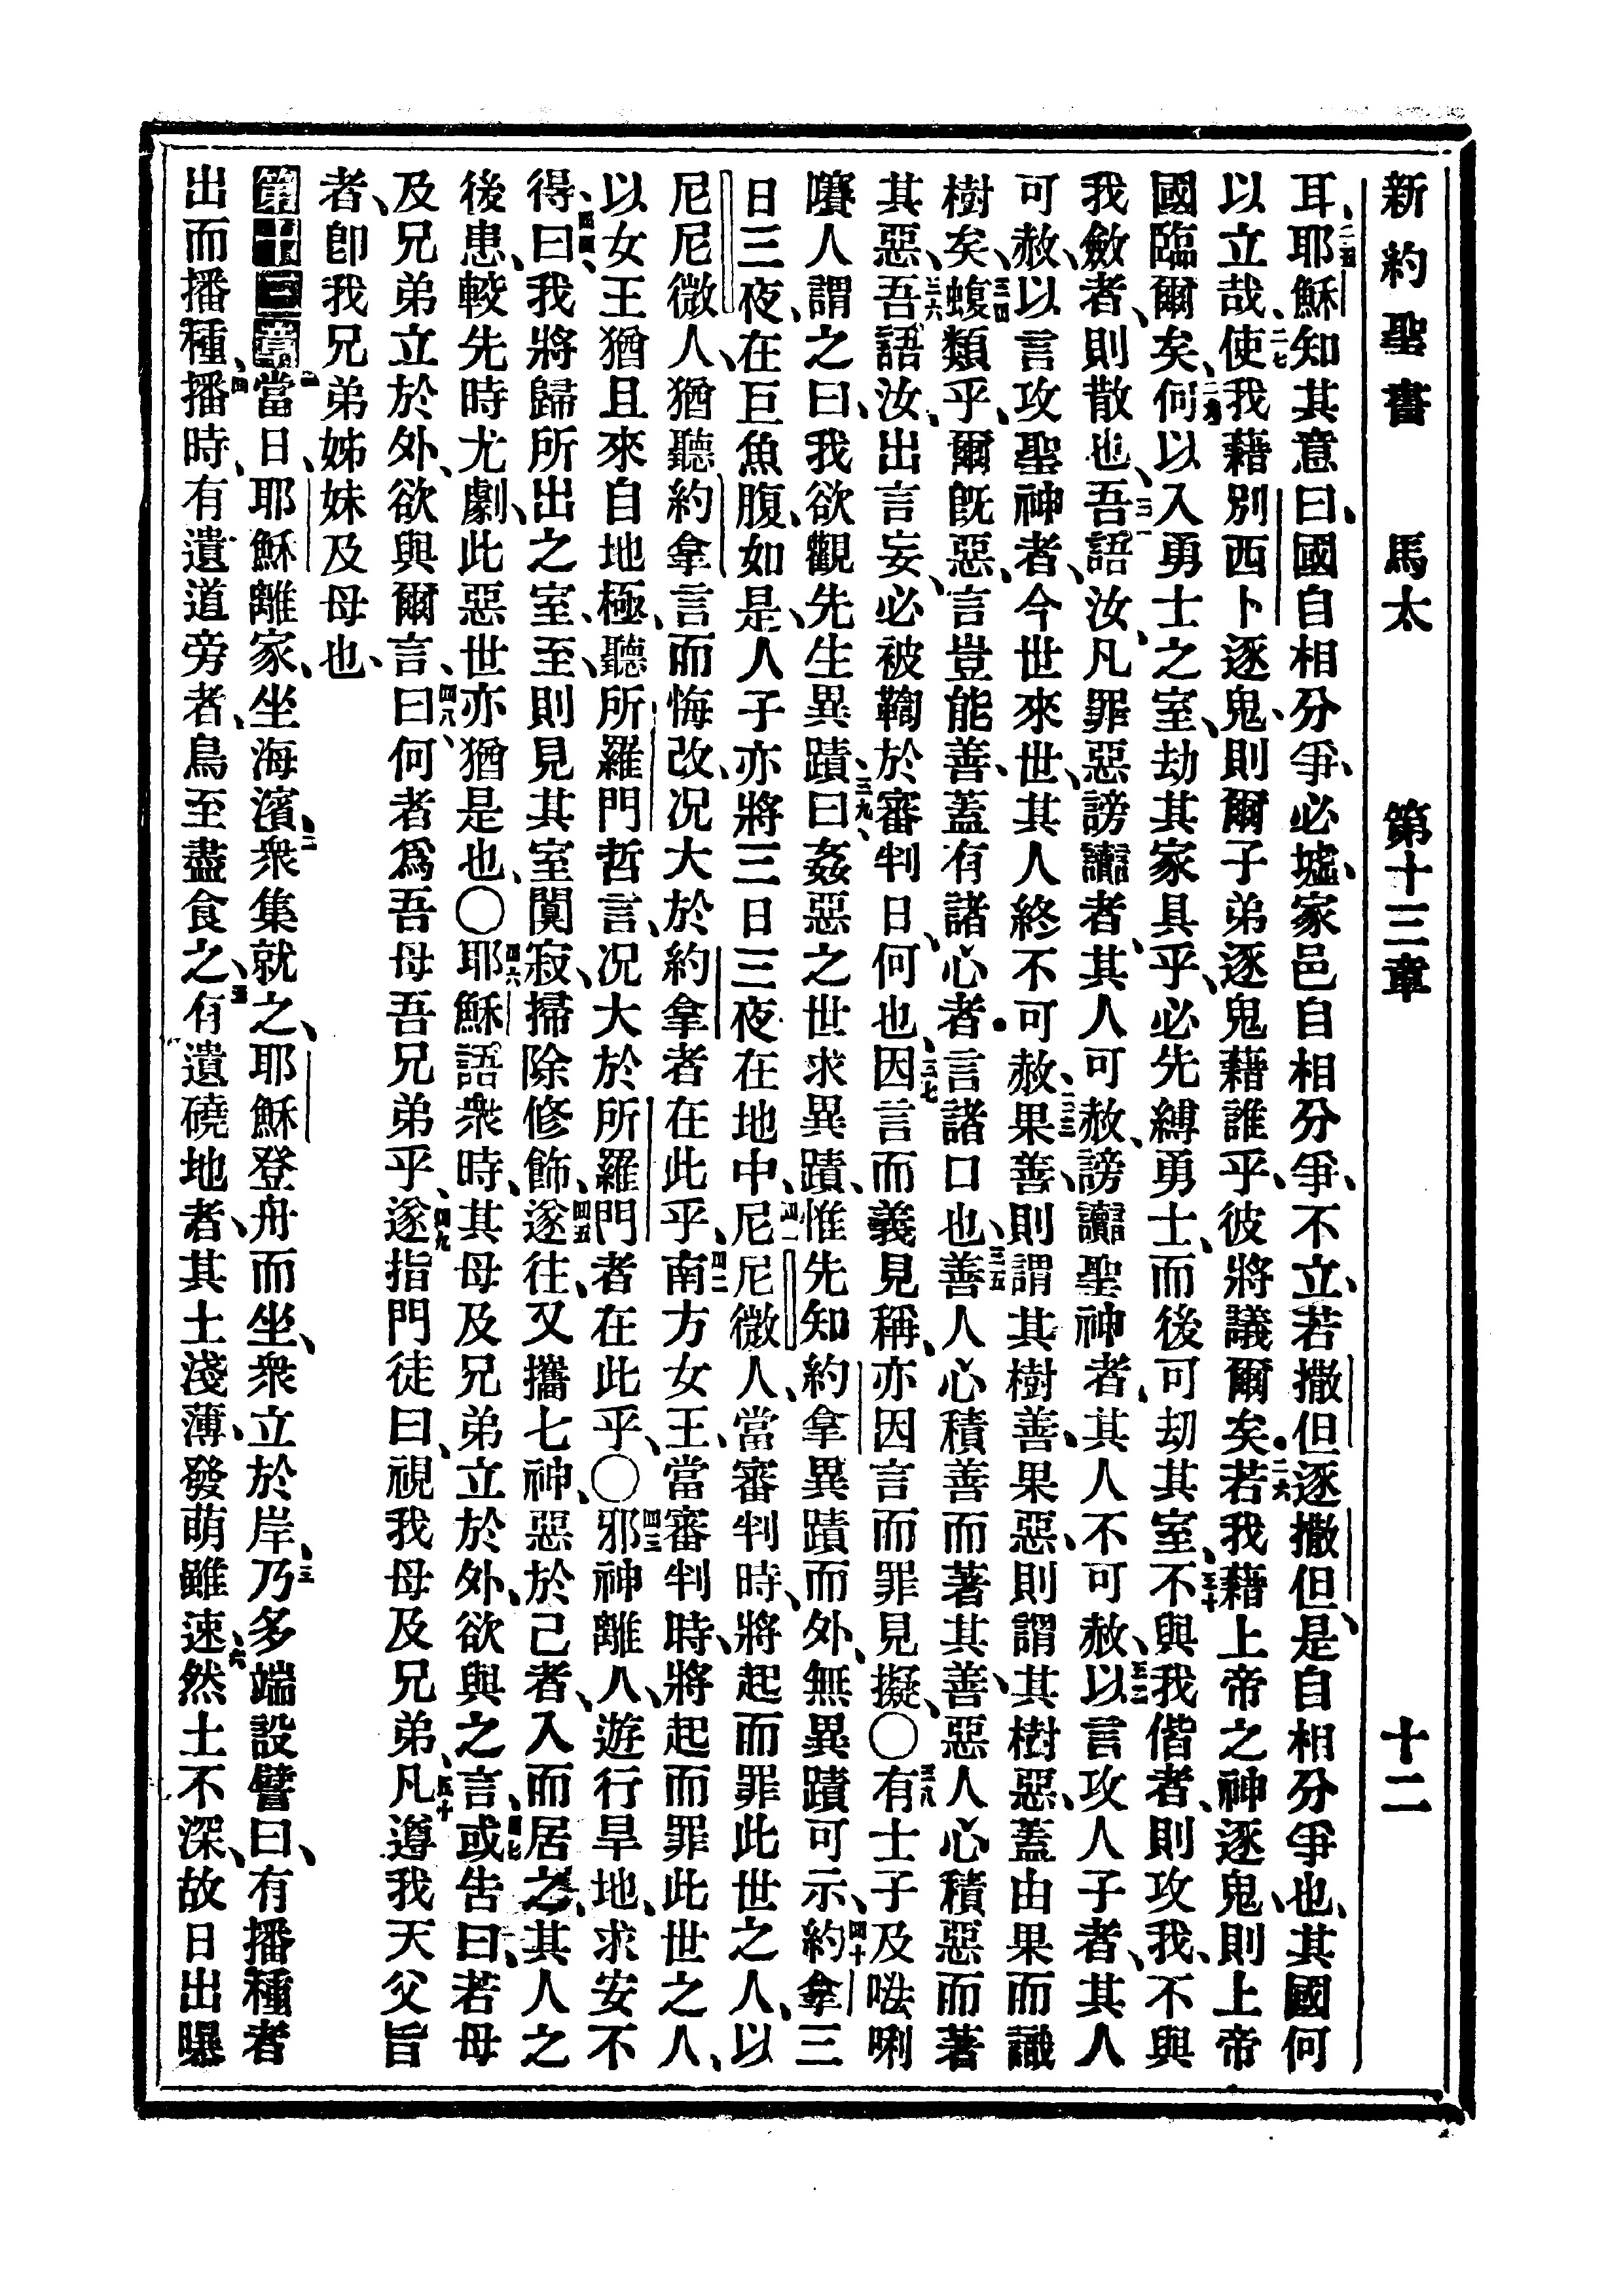 新約聖書 馬太 第十三章 十二
耳、二五耶穌知其意曰、國自相分爭、必墟、家邑自相分爭、不立、若撒但逐撒但、是自相分爭也、其國何
以立哉、二七使我藉別西卜逐鬼、則爾子弟逐鬼藉誰乎、彼將議爾矣、二六若我藉上帝之神逐鬼、則上帝
國臨爾矣、二九何以入勇士之室、劫其家具乎、必先縛勇士、而後可刧其室、三十不與我偕者、則攻我、不與
我斂者、則散也、三一吾語汝、凡罪惡謗讟者、其人可赦、謗讟聖神者、其人不可赦、三二以言攻人子者、其人
可赦、以言攻聖神者、今世來世、其人終不可赦、三三果善、則謂其樹善、果惡、則謂其樹惡、蓋由果而識
樹矣、三四蝮類乎、爾旣惡、言豈能善、蓋有諸心者、言諸口也、三五善人心積善而著其善、惡人心積惡而著
其惡、三六吾語汝、出言妄、必被鞫於審判日、何也、三七因言而義見稱、亦因言而罪見擬、〇三八有士子及𠵽唎
㘔人謂之曰、我欲觀先生異蹟、三九曰、姦惡之世求異蹟、惟先知約拿異蹟而外、無異蹟可示、四十約拿三
日三夜、在巨魚腹、如是、人子亦將三日三夜在地中、四一尼尼微人、當審判時、將起而罪此世之人、以
尼尼微人、猶聽約拿言而悔改、况大於約拿者在此乎、四二南方女王、當審判時、將起而罪此世之人、
以女王猶且來自地極、聽所羅門哲言、况大於所羅門者在此乎、〇四三邪神離人、遊行旱地、求安不
得、四四曰、我將歸所出之室、至、則見其室闃寂、掃除修飾、四五遂往、又攜七神、惡於己者、入而居之、其人之
後患、較先時尤劇、此惡世亦猶是也、〇四六耶穌語衆時、其母及兄弟立於外、欲與之言、四七或告曰、若母
及兄弟立於外、欲與爾言、四八曰、何者爲吾母吾兄弟乎、四九遂指門徒曰、視我母及兄弟、五十凡遵我天父旨
者、卽我兄弟姊妹及母也、
第十三章 一當日、耶穌離家、坐海濱、二衆集就之、耶穌登舟而坐、衆立於岸、三乃多端設譬曰、有播種者
出而播種、四播時、有遺道旁者、鳥至盡食之、五有遺磽地者、其土淺薄、發萌雖速、六然土不深、故日出曝